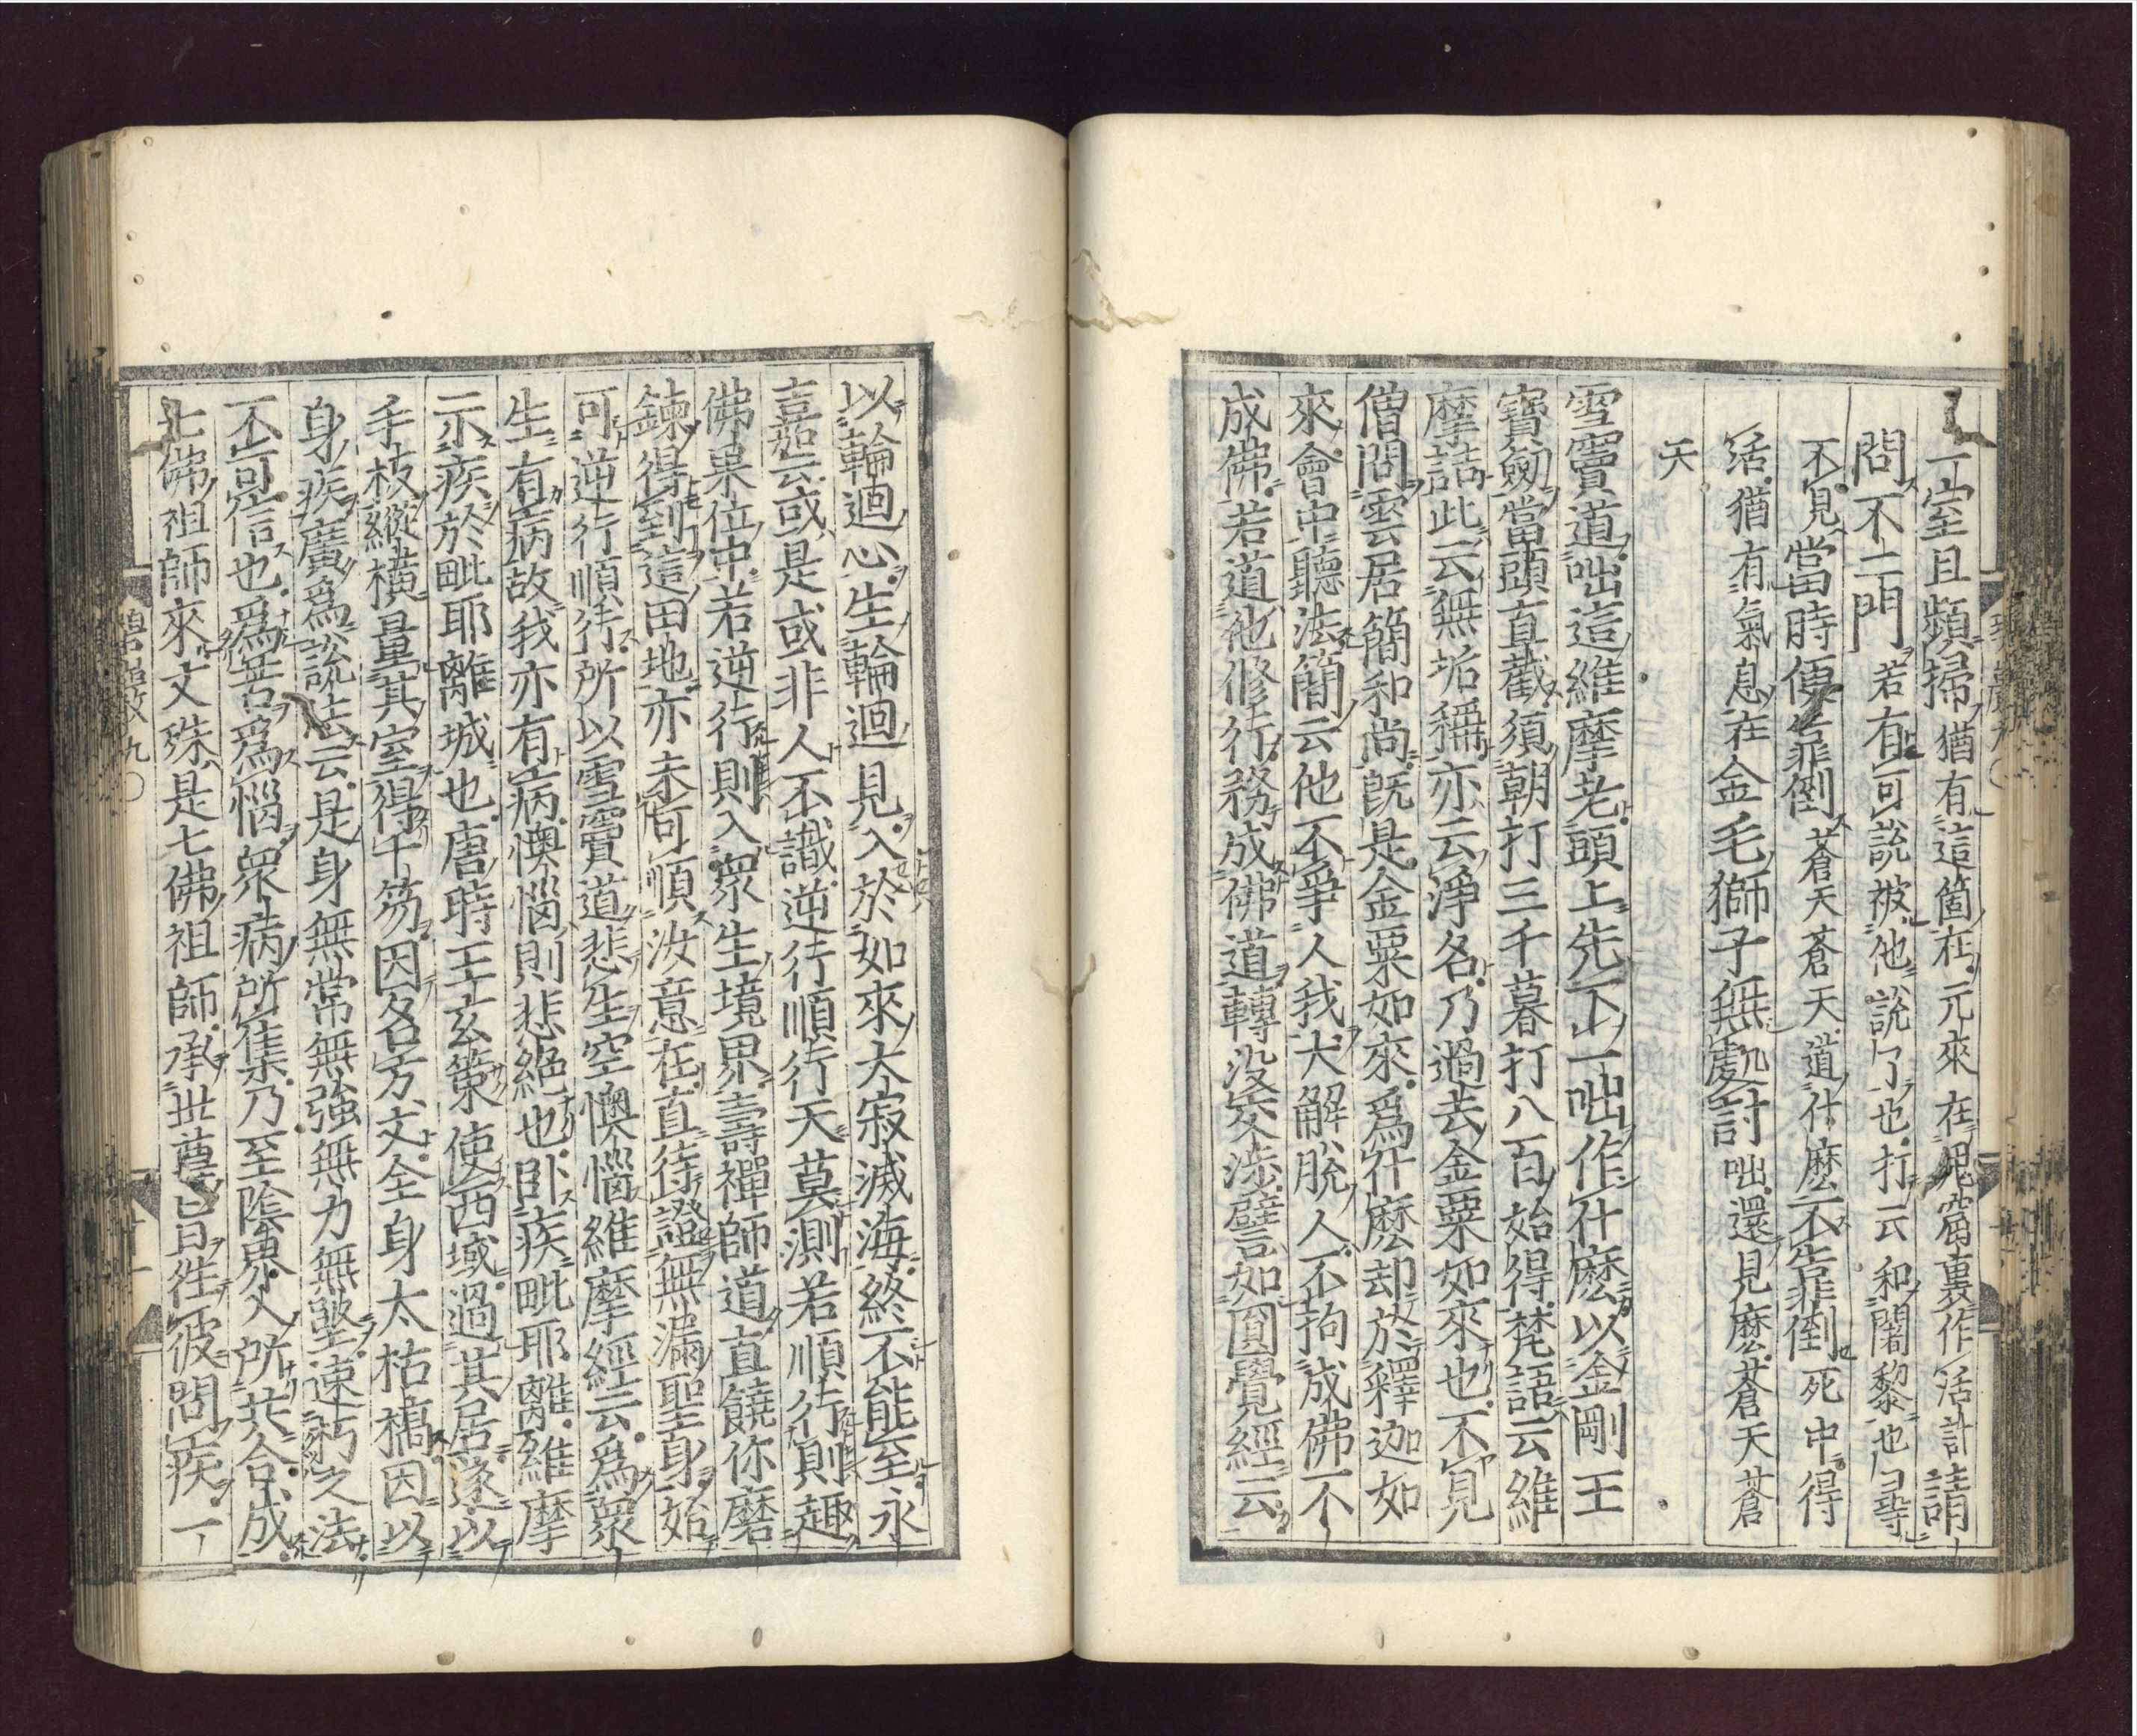 一室且頻掃猶有這箇在元來在鬼窟裏作活計請
問不二門若有可說被他說了也打云和闍黎也尋
不見當時便靠倒蒼天蒼天道什麽不靠倒死中得
活猶有氣息在金毛獅子無處討咄還見麽蒼天蒼
天
雪竇道咄這維摩老頭上先下一咄作什麽以金剛王
寶劔當頭直截須朝打三千暮打八百始得梵語云維
摩詰此云無垢稱亦云淨名乃過去金粟如來也不見
僧問雲居簡和尚既是金粟如來爲什麽却於釋迦如
來會中聽法簡云他不爭人我大解脫人不拘成佛不
成佛若道他修行務成佛道轉沒交涉譬如圓覺經云
以輪迴心生輪迴見入於如來大寂滅海終不能至永
嘉云或是或非人不識逆行順行天莫測若順行則趣
佛果位中若逆行則入衆生境界壽禪師道直饒你磨
鍊得到這田地亦未可順汝意在直待證無漏聖身始
可逆行順行所以雪竇道悲生空懊惱維摩經云爲衆
生有病故我亦有病懊惱則悲絕也卧疾毗耶離維摩
示疾於毗耶離城也唐時王玄策使西域過其居遂以
手板縱橫量其室得十笏因名方丈全身太枯槁因以
身疾廣爲說法云是身無常無強無力無堅速朽之法
不可信也爲苦爲惱衆病所集乃至陰界入所共合成
七佛祖師來文殊是七佛祖師承世尊旨往彼問疾一
碧巖九